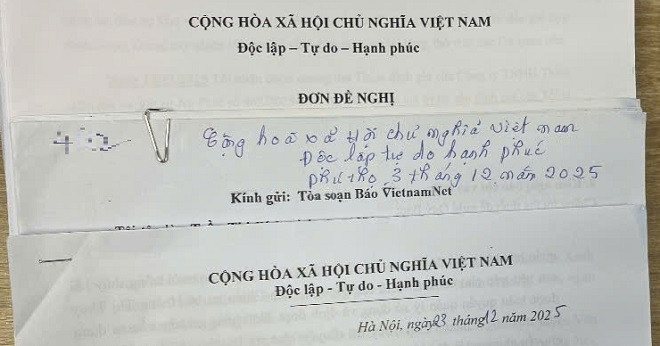 CỘNG HÒA XÃ HỘI CHỦ NGHĨA VIỆT NAM
Độc lập – Tự do – Hạnh phúc
ĐƠN ĐỀ NGHỊ
Cộng hoà xã Hội chủ nghĩa việt nam
Độc lập tự do hạnh phúc
phú thọ, 3 tháng 12 năm 2025
Kính gửi: Tòa soạn Báo VietnamNet
CỘNG HÒA XÃ HỘI CHỦ NGHĨA VIỆT NAM
Độc lập - Tự do - Hạnh phúc
Hà Nội, ngày 23 tháng 12 năm 2025